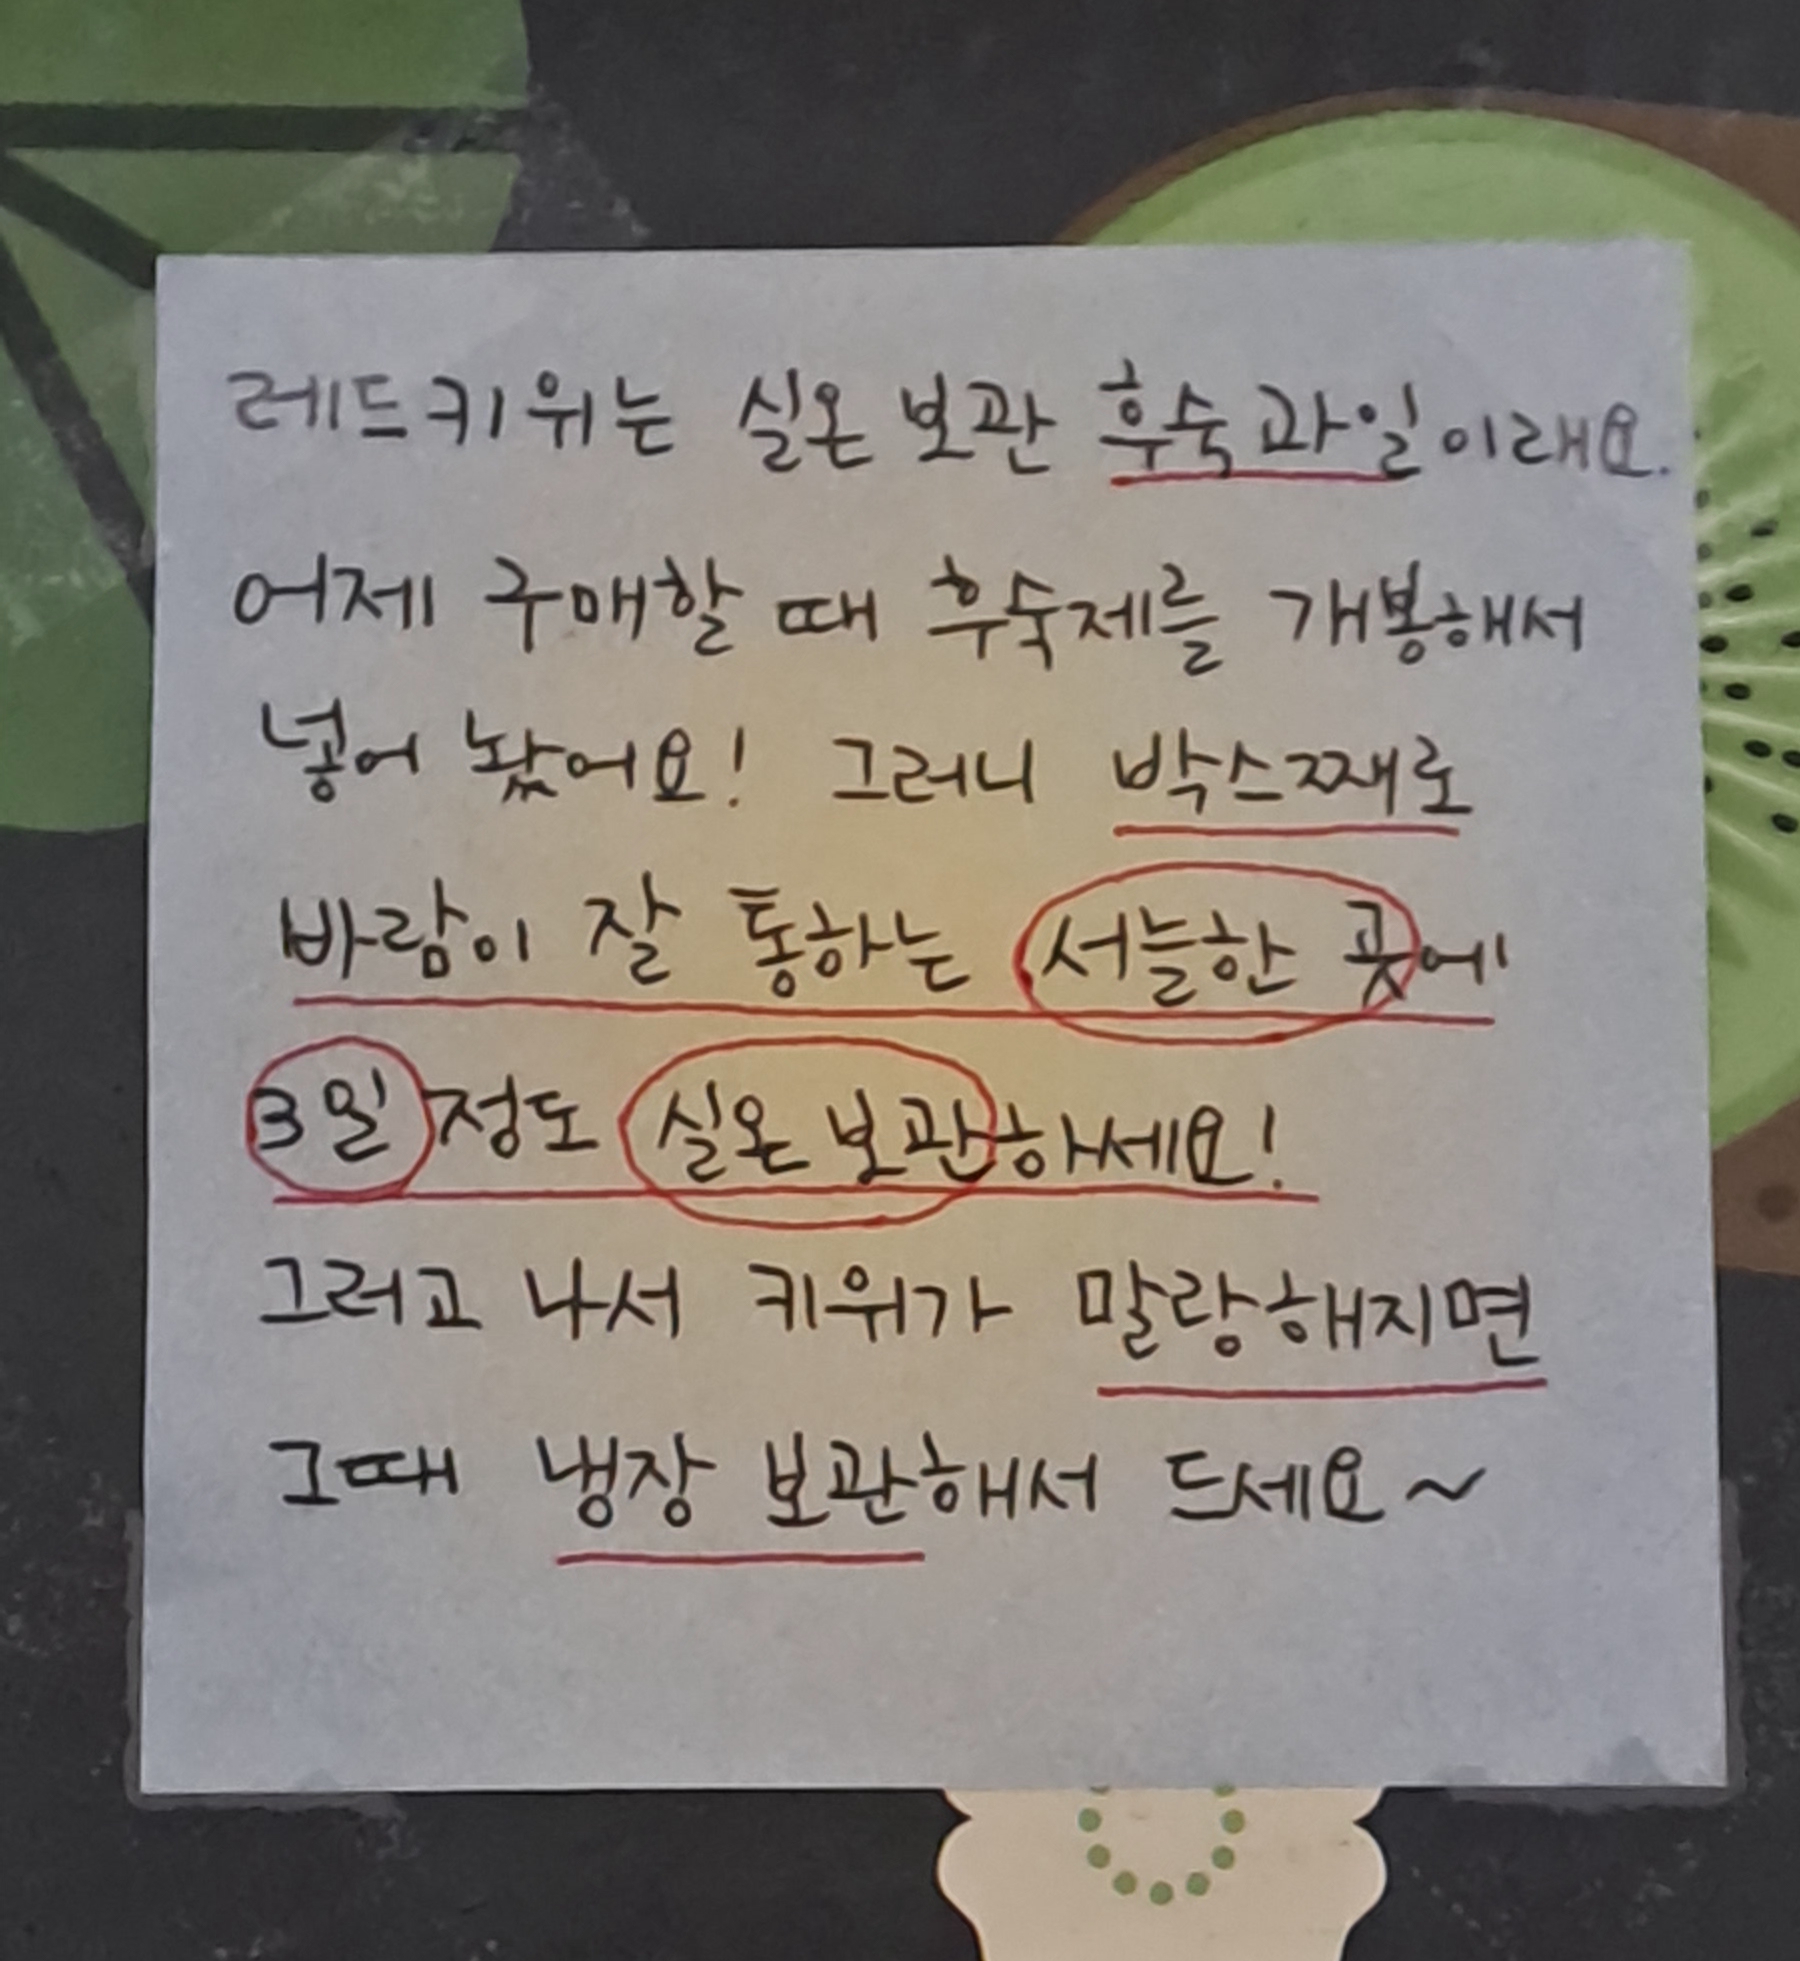 레드키위는 실온 보관 후숙과일이래요.
어제 구매할 때 후숙제를 개봉해서
넣어 놨어요! 그러니 박스째로
바람이 잘 통하는 서늘한 곳에
3일 정도 실온 보관하세요!
그러고 나서 키위가 말랑해지면
그때 냉장 보관해서 드세요~